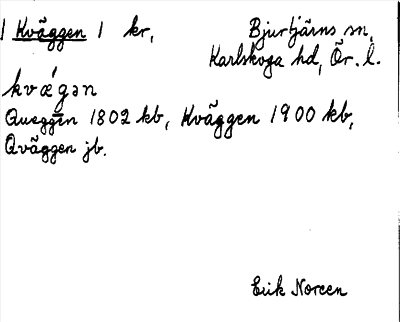 Kväggen 1 kr,
Bjurtjärns sn,
Karlskoga hd, Ör. l.
kvǽgən
Queggēn 1802 kb, Kväggen 1900 kb,
Qväggen jb.
Erik Noreen